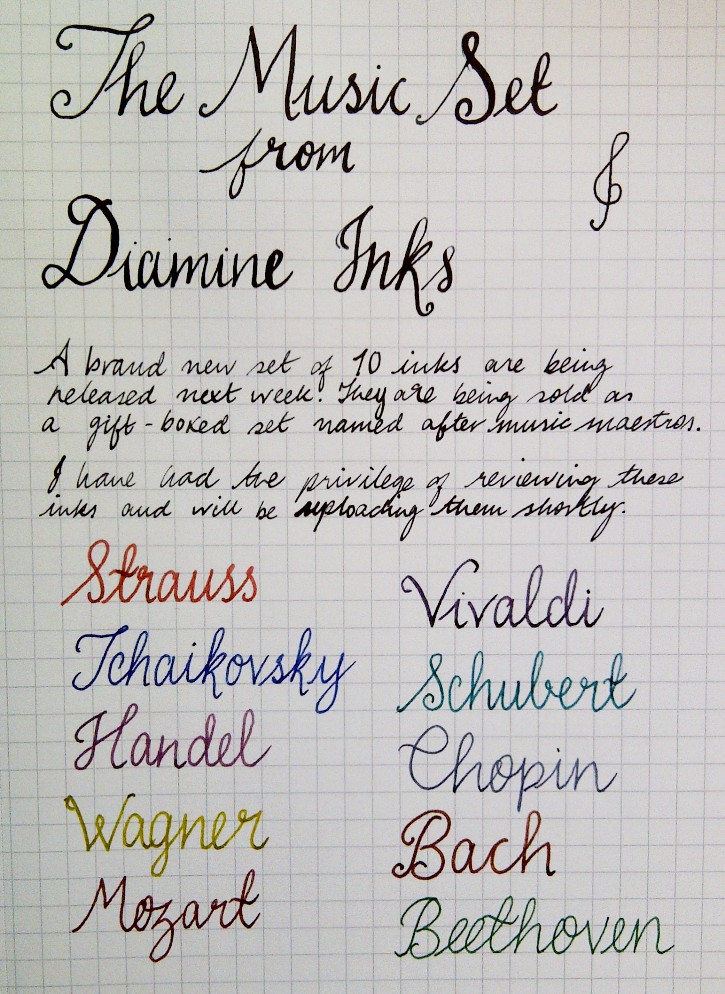 The Music Set
from
Diamine Inks
A brand new set of 10 inks are being
released next week. They are being sold as
a gift-boxed set named after music maestros.
I have had the privilege of reviewing these
inks and will be uploading them shortly.
Strauss
Tchaikovsky
Handel
Wagner
Mozart
Vivaldi
Schubert
Chopin
Bach
Beethoven